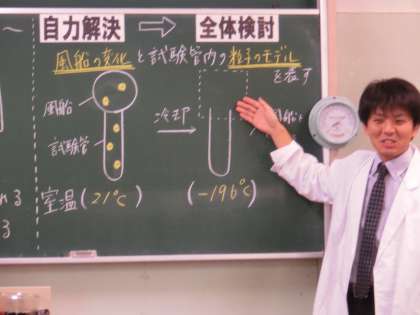 自力解決 → 全体検討
風船の変化と試験管内の粒子のモデル
を表す
風船
試験管
冷却
室温(21℃)
(-196℃)
3
3